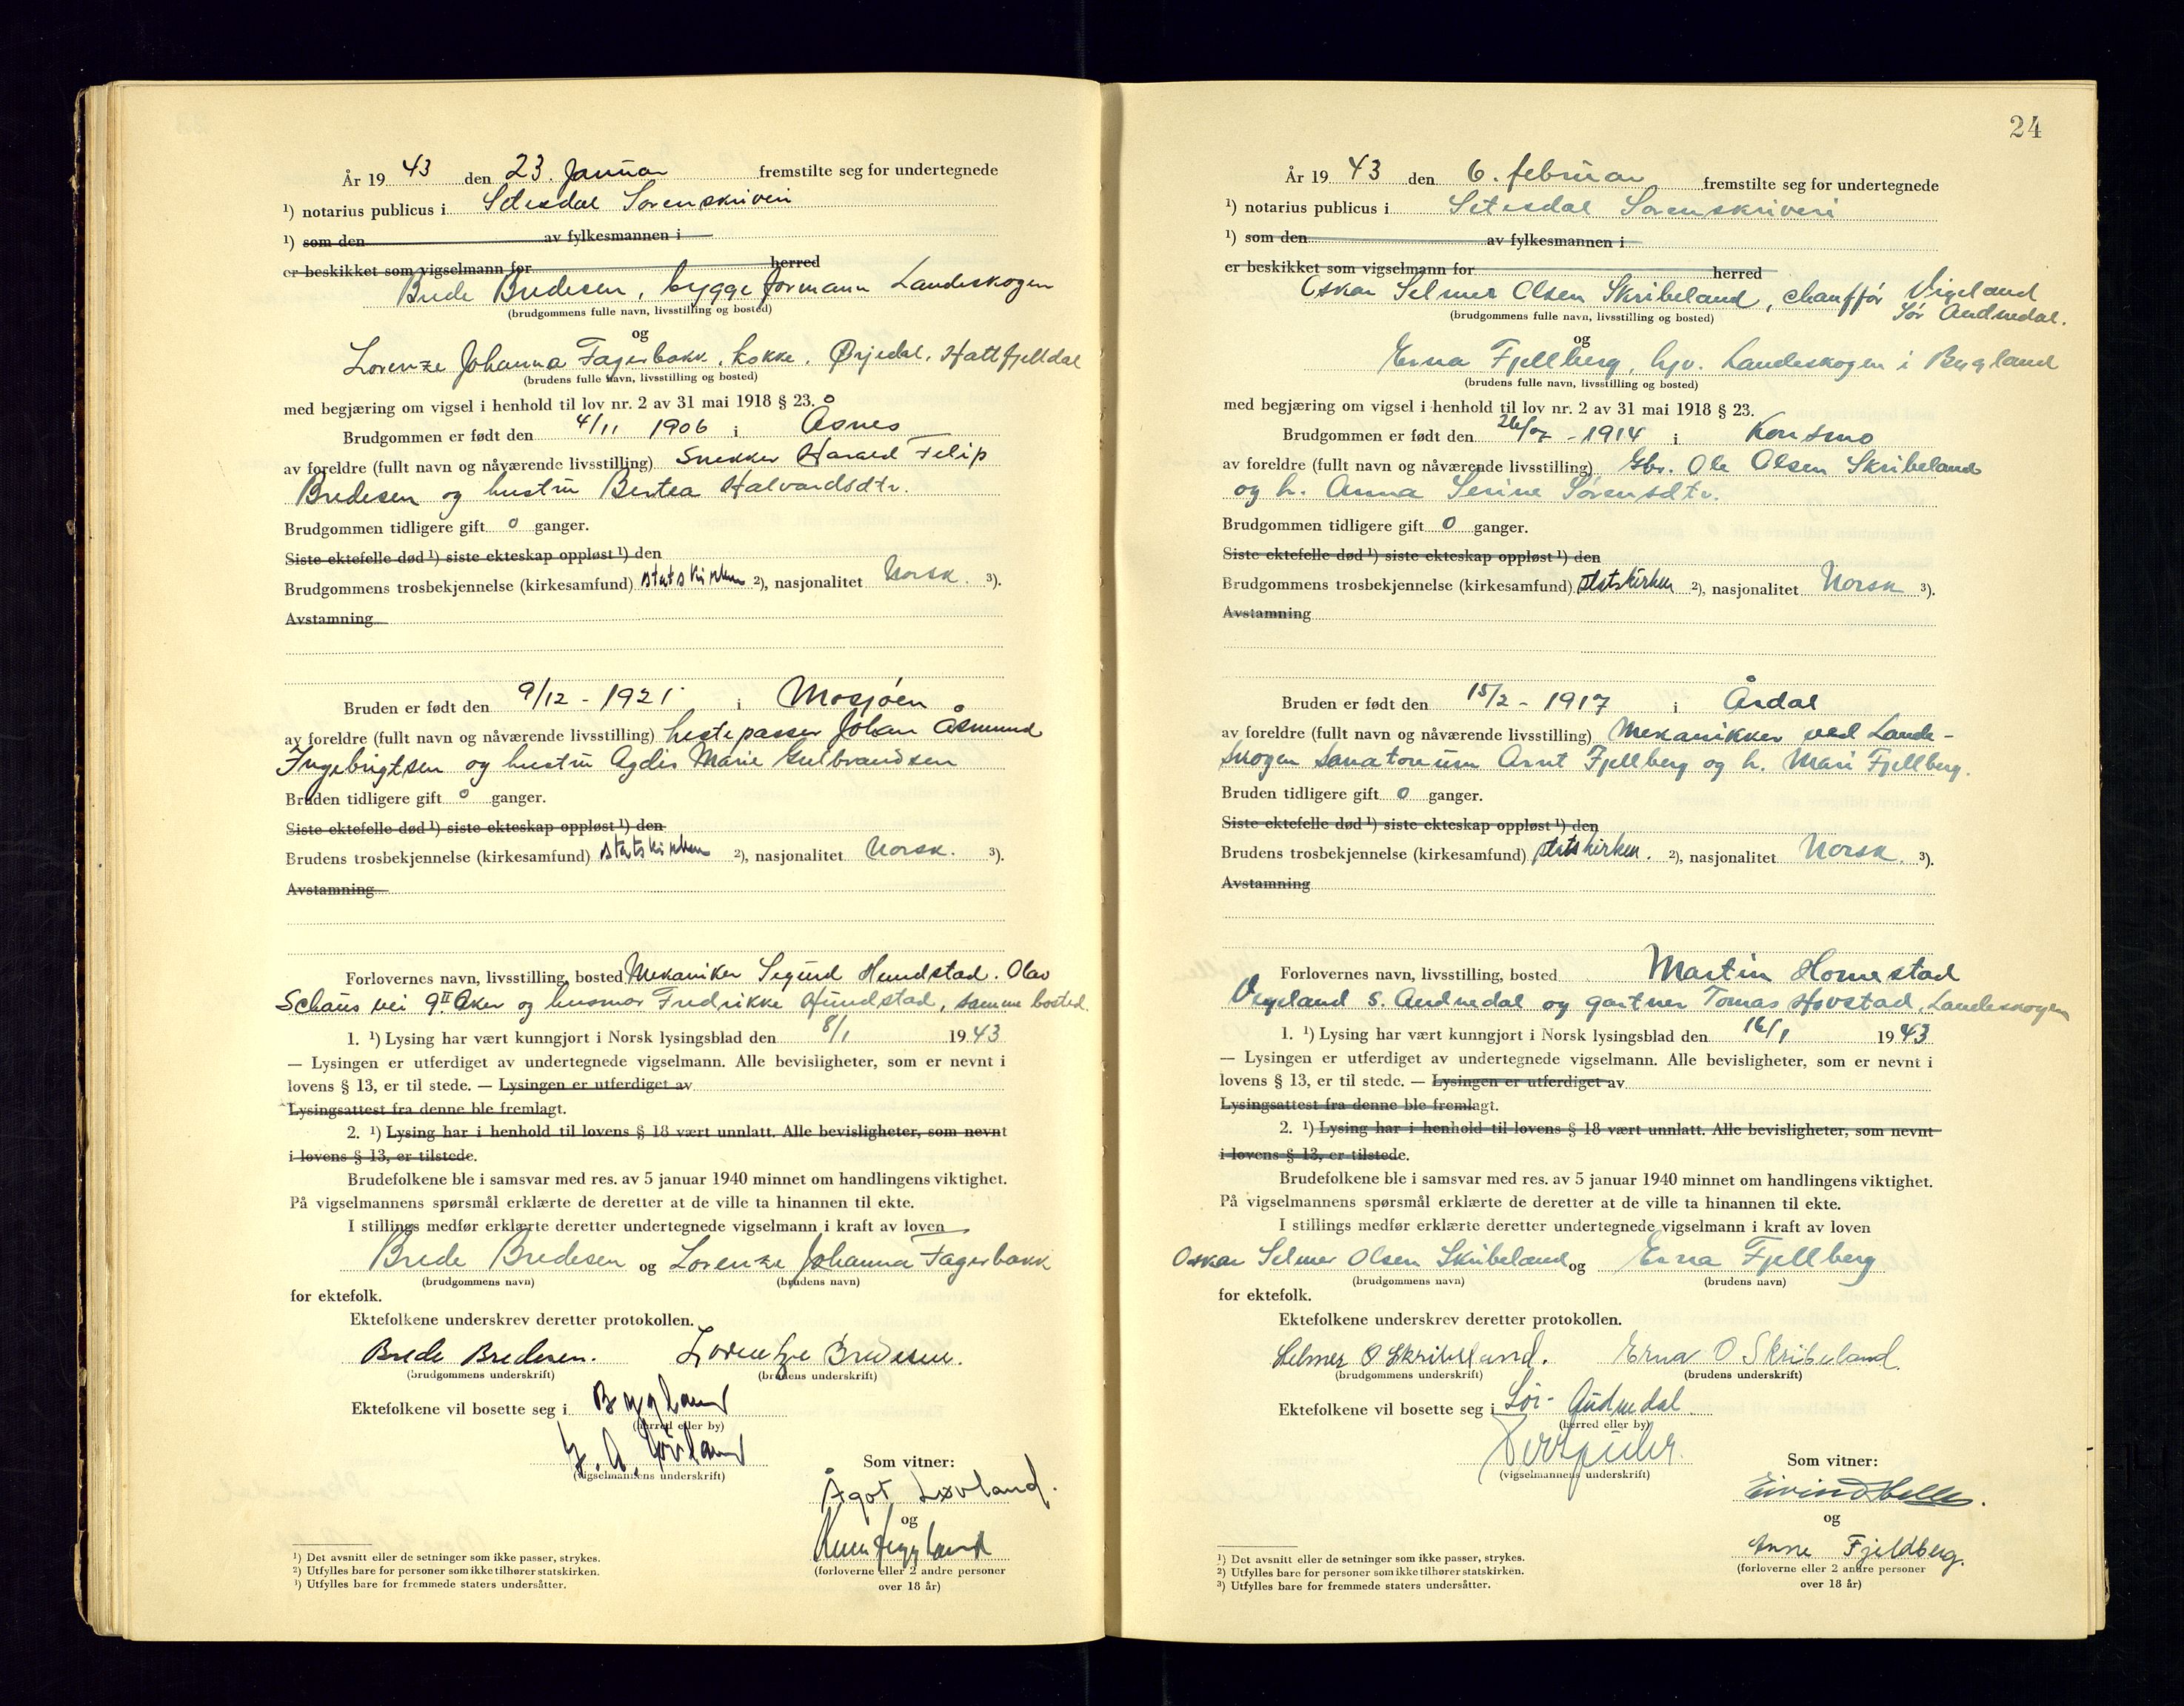 År 19 43 den 23. Januar fremstilte seg for undertegnede
¹) notarius publicus i Setesdal Sorenskriveri
¹) som den av fylkesmannen i
er beskikket som vigselmann for herred
Brede Bredesen, byggeformann Landeskogen
(brudgommens fulle navn, livsstilling og bosted)
og
Lorenze Johanna Fagerbakk, kokke. Ørjedal, Hattfjelldal
(brudens fulle navn, livsstilling og bosted)
med begjæring om vigsel i henhold til lov nr. 2 av 31 mai 1918 § 23.
Brudgommen er født den 4/11 1906 i Åsnes
av foreldre (fullt navn og nåværende livsstilling) Snekker Harald Filip
Bredesen og hustru Bertea Halvardsdtr.
Brudgommen tidligere gift 0 ganger.
Siste ektefelle død ¹) siste ekteskap oppløst ¹) den
Brudgommens trosbekjennelse (kirkesamfund) statskirken ²), nasjonalitet Norsk. ³).
Avstamning
Bruden er født den 9/12 - 1921 i Mosjøen
av foreldre (fullt navn og nåværende livsstilling) hestepasser Johan Åsmund
Ingebrigtsen og hustru Agdis Marie Gulbrandsen
Bruden tidligere gift 0 ganger.
Siste ektefelle død ¹) siste ekteskap oppløst ¹) den
Brudens trosbekjennelse (kirkesamfund) statskirken ²), nasjonalitet Norsk. ³).
Avstamning
Forlovernes navn, livsstilling, bosted Mekaniker Sigurd Hundstad. Olav
Schous vei 9 II Aker og husmor Fredrikke Hundstad, samme bosted.
1. ¹) Lysing har vært kunngjort i Norsk lysingsblad den 8/1 1943
— Lysingen er utferdiget av undertegnede vigselmann. Alle bevisligheter, som er nevnt i
lovens § 13, er til stede. — Lysingen er utferdiget av
Lysingsattest fra denne ble fremlagt.
2. ¹) Lysing har i henhold til lovens § 18 vært unnlatt. Alle bevisligheter, som nevnt
i lovens § 13, er tilstede.
Brudefolkene ble i samsvar med res. av 5 januar 1940 minnet om handlingens viktighet.
På vigselmannens spørsmål erklærte de deretter at de ville ta hinannen til ekte.
I stillings medfør erklærte deretter undertegnede vigselmann i kraft av loven
Brede Bredesen og Lorenze Johanna Fagerbakk
(brudgommens navn) (brudens navn)
for ektefolk.
Ektefolkene underskrev deretter protokollen.
Brede Bredesen. Lorentze Bredesen.
(brudgommens underskrift) (brudens underskrift)
Ektefolkene vil bosette seg i Bygland
(herred eller by)
A. Lövland
(vigselmannens underskrift)
Som vitner:
Ågot Løvland.
og
(forloverne eller 2 andre personer
over 18 år)
¹) Det avsnitt eller de setninger som ikke passer, strykes.
²) Utfylles bare for personer som ikke tilhører statskirken.
³) Utfylles bare for fremmede staters undersåtter.
24
År 19 43 den 6. februar fremstilte seg for undertegnede
¹) notarius publicus i Setesdal Sorenskriveri
¹) som den av fylkesmannen i
er beskikket som vigselmann for herred
Oskar Selmer Olsen Skribeland, chauffør Vigeland
Sør Audnedal.
(brudgommens fulle navn, livsstilling og bosted)
og
Erna Fjellberg, hjv. Landeskogen i Bygland
(brudens fulle navn, livsstilling og bosted)
med begjæring om vigsel i henhold til lov nr. 2 av 31 mai 1918 § 23.
Brudgommen er født den 26/ - 1914 i Konsmo
av foreldre (fullt navn og nåværende livsstilling) Gbr. Ole Olsen Skribeland
og h. Anna Serine Sørensdtr.
Brudgommen tidligere gift 0 ganger.
Siste ektefelle død ¹) siste ekteskap oppløst ¹) den
Brudgommens trosbekjennelse (kirkesamfund) statskirken ²), nasjonalitet Norsk ³).
Avstamning
Bruden er født den 15/2 - 1917 i Årdal
av foreldre (fullt navn og nåværende livsstilling) Mekanikker ved Lande-
skogen Sanatorium Arnt Fjellberg og h. Mari Fjellberg.
Bruden tidligere gift 0 ganger.
Siste ektefelle død ¹) siste ekteskap oppløst ¹) den
Brudens trosbekjennelse (kirkesamfund) statskirken. ²), nasjonalitet Norsk. ³).
Avstamning
Forlovernes navn, livsstilling, bosted Martin Homestad
Vigeland S. Audnedal og gartner Tomas Hovstad, Landeskogen
1. ¹) Lysing har vært kunngjort i Norsk lysingsblad den 16/1 1943
— Lysingen er utferdiget av undertegnede vigselmann. Alle bevisligheter, som er nevnt i
lovens § 13, er til stede. — Lysingen er utferdiget av
Lysingsattest fra denne ble fremlagt.
2. ¹) Lysing har i henhold til lovens § 18 vært unnlatt. Alle bevisligheter, som nevnt
i lovens § 13, er tilstede.
Brudefolkene ble i samsvar med res. av 5 januar 1940 minnet om handlingens viktighet.
På vigselmannens spørsmål erklærte de deretter at de ville ta hinannen til ekte.
I stillings medfør erklærte deretter undertegnede vigselmann i kraft av loven
Oskar Selmer Olsen Skribeland og Erna Fjellberg
(brudgommens navn) (brudens navn)
for ektefolk.
Ektefolkene underskrev deretter protokollen.
Selmer O Skribeland. Erna O Skribeland.
(brudgommens underskrift) (brudens underskrift)
Ektefolkene vil bosette seg i Sør-Audnedal
(herred eller by)
(vigselmannens underskrift)
Som vitner:
Eivind Helle.
og
Anne Fjeldberg.
(forloverne eller 2 andre personer
over 18 år)
¹) Det avsnitt eller de setninger som ikke passer, strykes.
²) Utfylles bare for personer som ikke tilhører statskirken.
³) Utfylles bare for fremmede staters undersåtter.